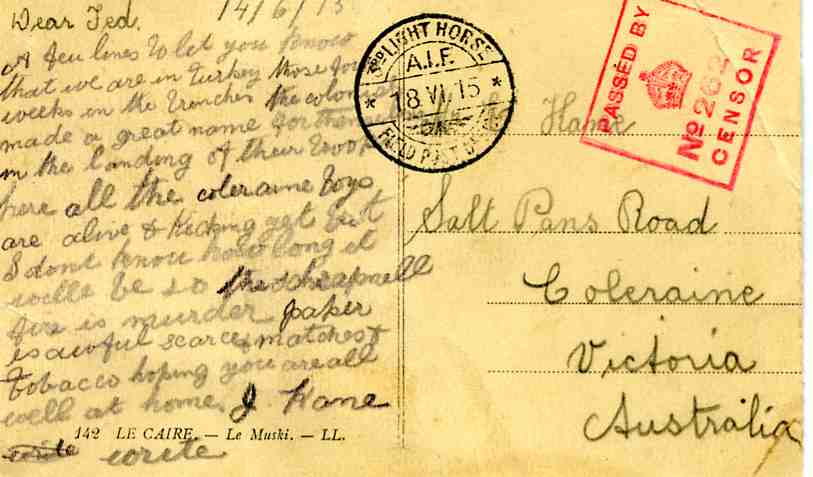 Dear Ted. 14/6/15
A few lines to let you know
that we are in Turkey these four
weeks in the trenches the colonials
made a great name for
in the landing of their troops
here all the coleraine boys
are alive & kicking yet but
I dont know how long it
wille be so the shrapnell
fire is murder paper
is awful scarce & matches &
Tobacco hoping you are all
well at home. J. Kane
142 LE CAIRE. — Le Muski. — LL.
write
3RD LIGHT HORSE
A.I.F.
* 18 VI. 15 *
FIELD POST OFFICE
PASSED BY
No 262
CENSOR
Kane
Salt Pans Road
Coleraine
Victoria
Australia